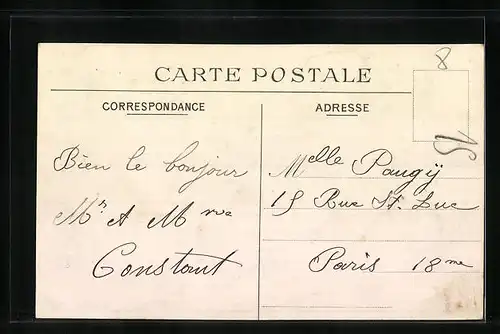 8
CARTE POSTALE
CORRESPONDANCE
ADRESSE
15
Bien le bonjour
Mr A Mme
Constant
Melle Paugÿ
15 Rue St. Luc
Paris 18me